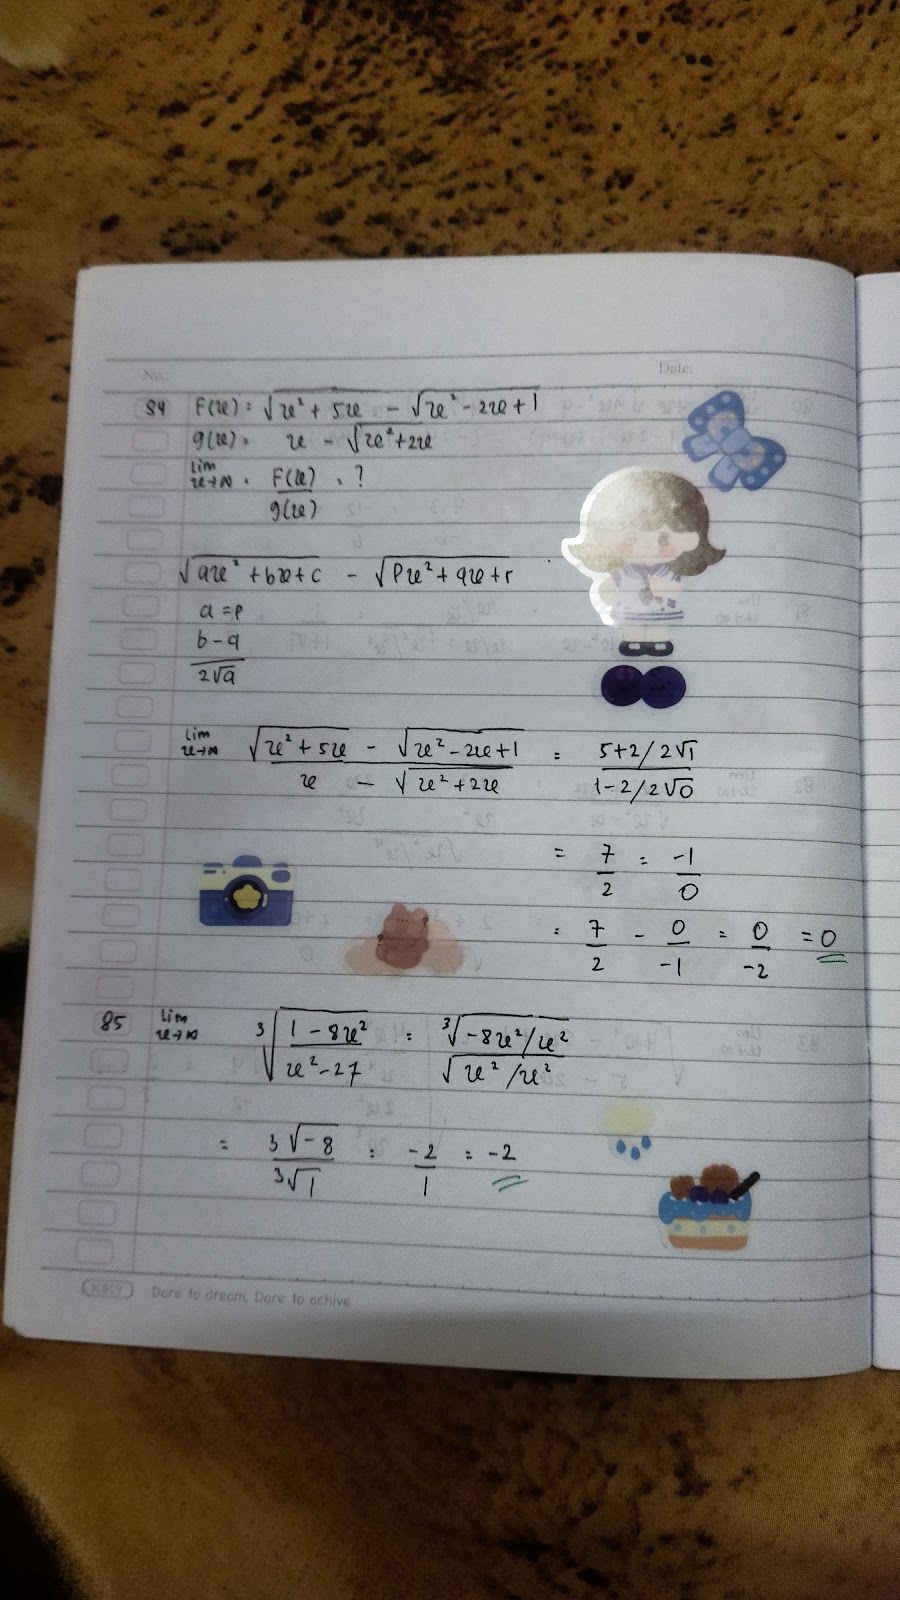 No.
Date:
84 F(x) = √x² + 5x - √x² - 2x + 1
g(x) = x - √x² + 2x
lim x→∞ = F(x) / g(x) = ?
√ax² + bx + c - √px² + qx + r
a = p
b - q / 2√a
lim x→∞ √x² + 5x - √x² - 2x + 1 / x - √x² + 2x = 5+2/2√1 / 1-2/2√0
= 7/2 = -1/0
= 7/2 - 0/-1 = 0/-2 = 0
85 lim x→∞ ³√1 - 8x² / x² - 27 = ³√-8x²/x² / √x²/x²
= ³√-8 / ³√1 = -2/1 = -2
KKY Dare to dream, Dare to achive